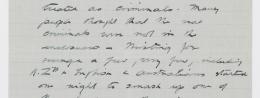 treated as criminals. Many
people thought that the real
criminals were not in the
enclosure. Waiting for
a few, very few, including
N.Z's & English & Australians started
one night to smash up one of